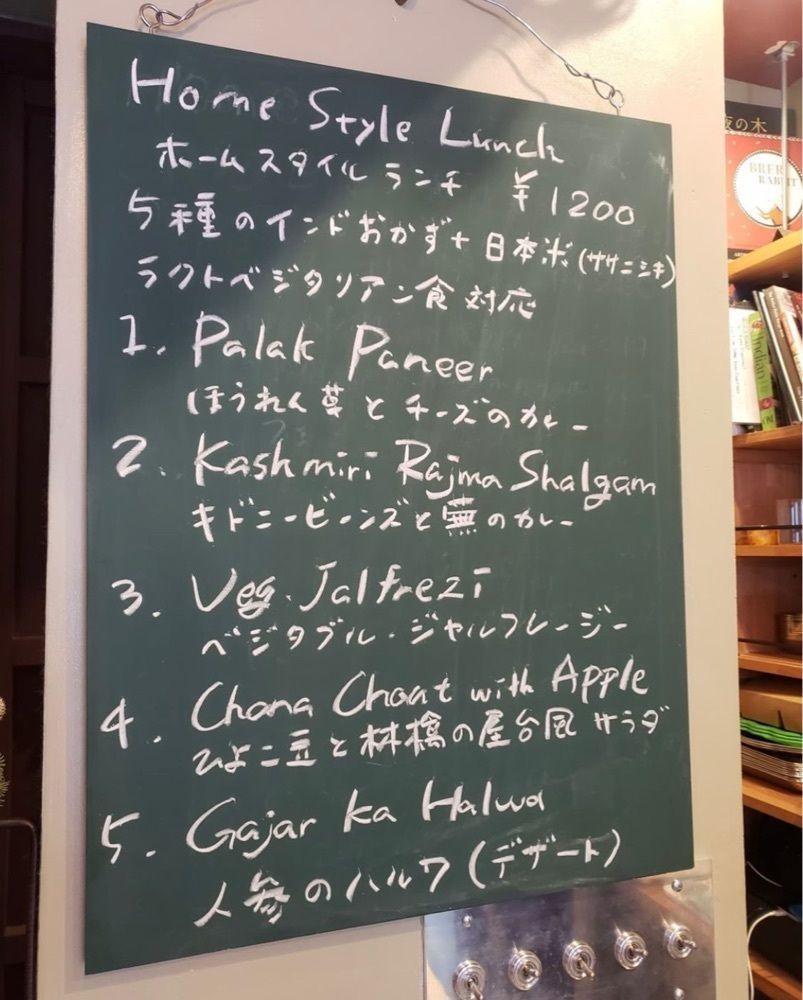 Home Style Lunch
ホームスタイル ランチ ¥1200
5種のインドおかず+日本米(ササニシキ)
ラクトベジタリアン食 対応
1. Palak Paneer
ほうれん草とチーズのカレー
2. Kashmiri Rajma Shalgam
キドニービーンズと蕪のカレー
3. Veg. Jalfrezi
ベジタブル・ジャルフレージー
4. Chana Chaat with Apple
ひよこ豆と林檎の屋台風 サラダ
5. Gajar ka Halwa
人参のハルワ(デザート)
夜の木
BRER
RABBIT
Indian